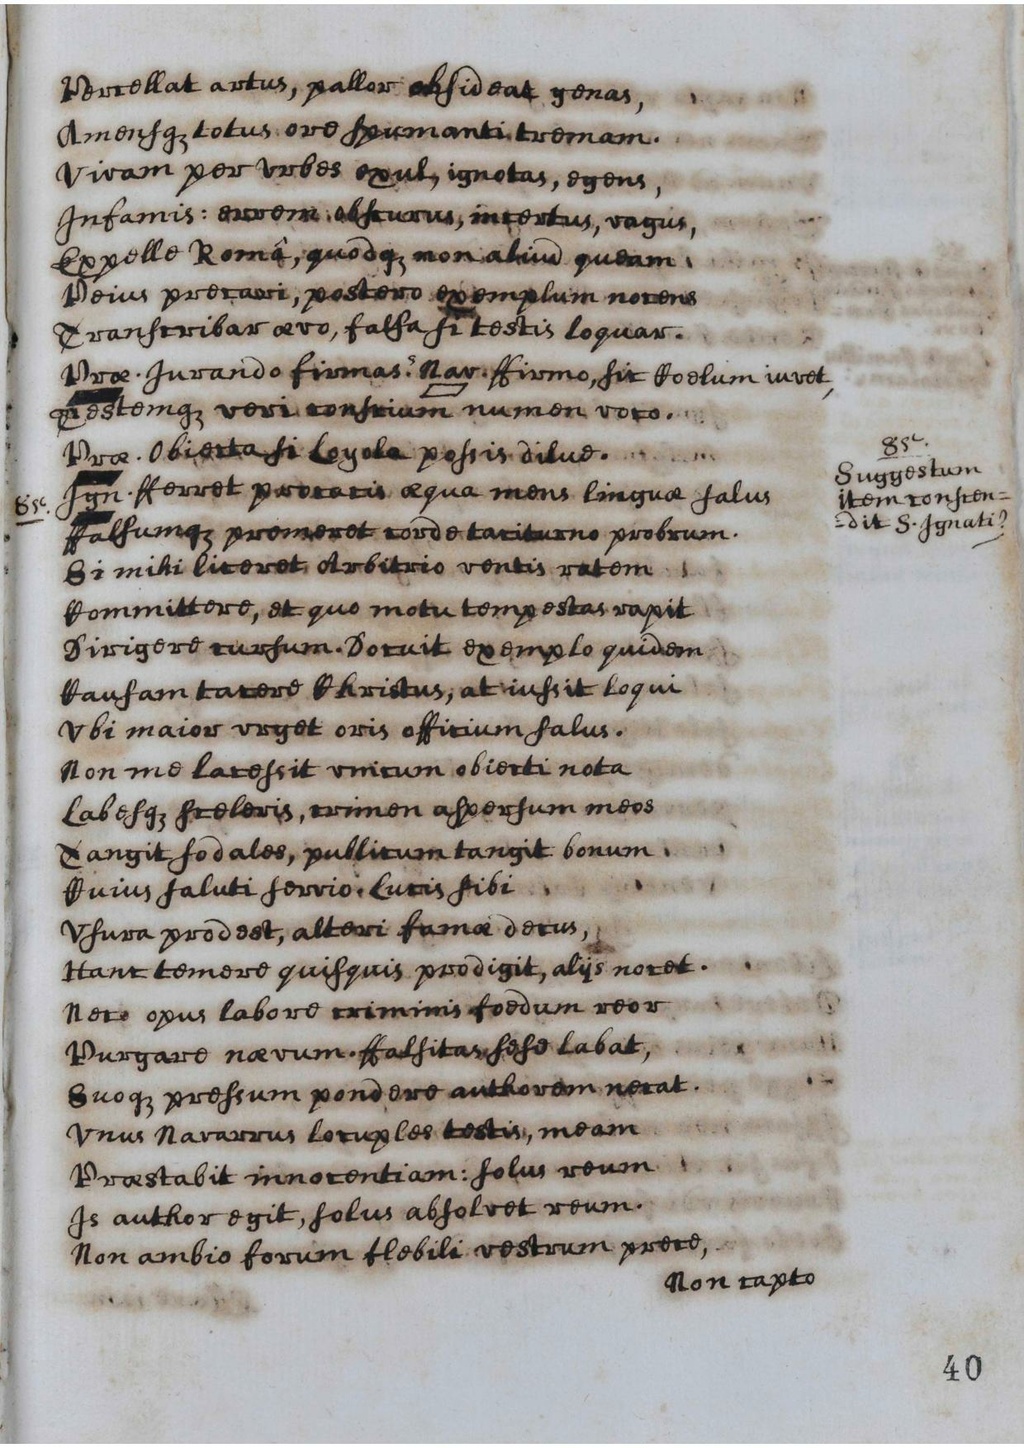 Percellat artus, pallor obsideat genas,
Amensq; totus ore spumanti tremam.
Vivam per Vrbes exul, ignotas, egens,
Infamis: errem obscurus, incertus, vagus,
Expelle Româ, quodq; non aliud queam
Peius precari, postero exemplum nocens
Transcribar ævo, falsa si testis loquar.
Præ. Iurando firmas? Nav. ffirmo, sic Coelum iuvet,
Testemq; veri conscium numen voco.
Præ. Obiecta si Loyola possis dilue.
8sc. Ign. fferret procacis æqua mens linguæ salus
ffalsumq; premeret corde taciturno probrum.
Si mihi liceret Arbitrio ventis ratem
Committere, et quo motu tempestas rapit
Dirigere cursum. Docuit exemplo quidem
Causam tacere Christus, at iussit loqui
Vbi maior vrget oris officium salus.
Non me lacessit vnicum obiecti nota
Labesq; sceleris, crimen aspersum meos
Tangit sodales, publicum tangit bonum
Cuius saluti servio. Lucis sibi
Vsura prodest, alteri famæ decus,
Hanc temere quisquis prodigit, alijs nocet.
Nec opus labore criminis foedum reor
Purgare nævum. ffalsitas sese labat,
Suoq; pressum pondere authorem necat.
Vnus Navarrus locuples testis, meam
Præstabit innocentiam: solus reum
Is author egit, solus absolvet reum.
Non ambio forum flebili vestrum prece,
Non capto
8sc.
Suggestum
item conscen=
=dit S. Ignati?
40